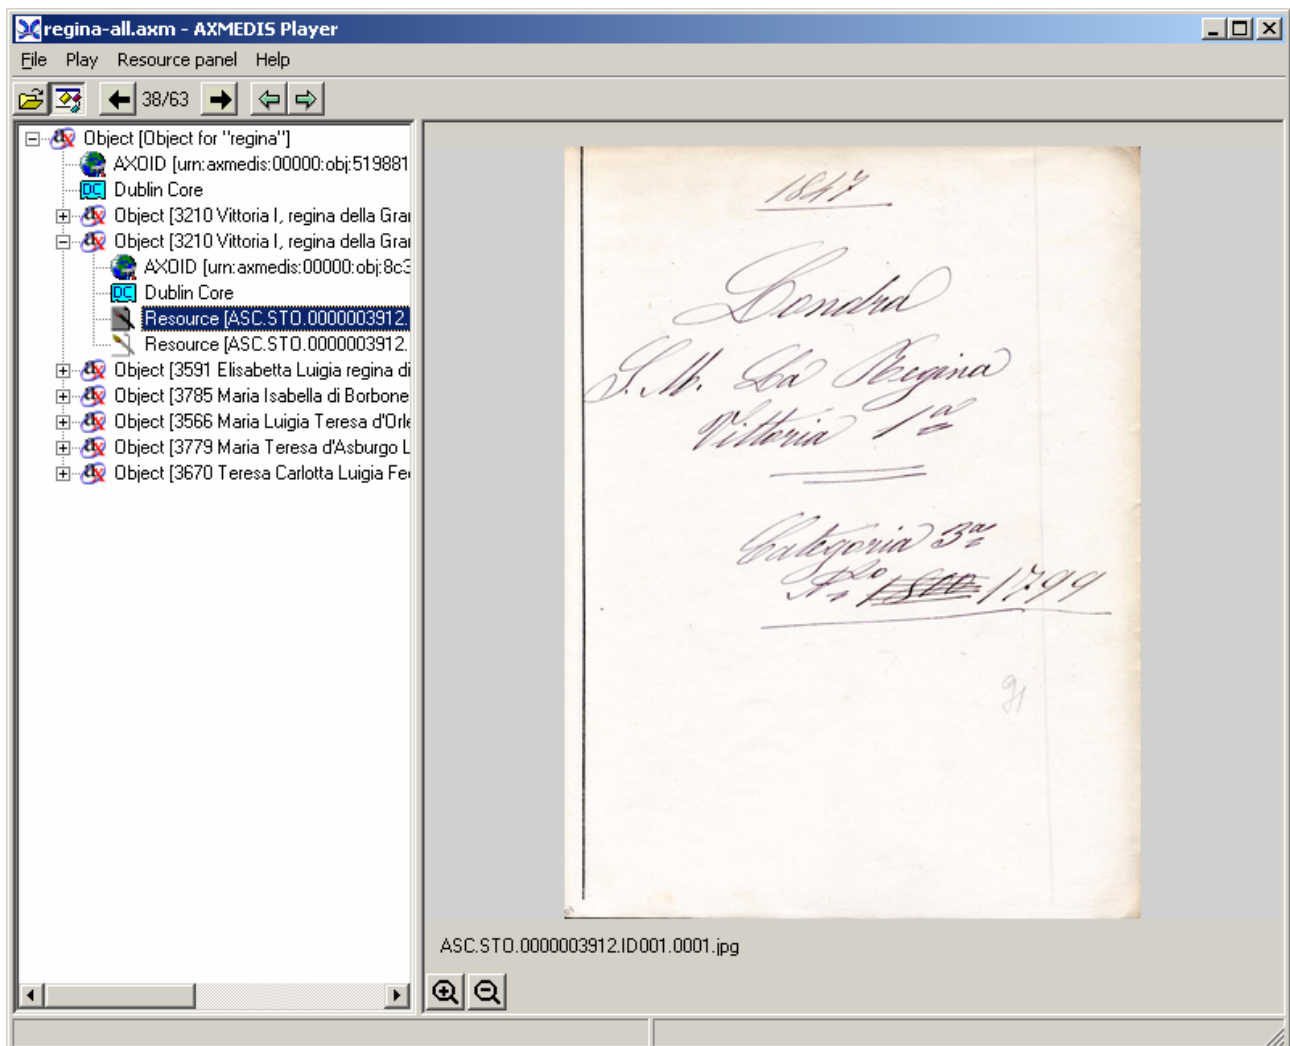 regina-all.axm - AXMEDIS Player
File Play Resource panel Help
38/63
Object [Object for "regina"]
AXOID [urn:axmedis:00000:obj:519881
DC Dublin Core
Object [3210 Vittoria I, regina della Gra
Object [3210 Vittoria I, regina della Gra
AXOID [urn:axmedis:00000:obj:8c3
DC Dublin Core
Resource [ASC.STO.0000003912.
Resource [ASC.STO.0000003912.
Object [3591 Elisabetta Luigia regina di
Object [3785 Maria Isabella di Borbone
Object [3566 Maria Luigia Teresa d'Orle
Object [3779 Maria Teresa d'Asburgo L
Object [3670 Teresa Carlotta Luigia Fe
1847
Londra
S. M. La Regina
Vittoria 1a
Categoria 3a
No 1800 1799
91
ASC.STO.0000003912.ID001.0001.jpg